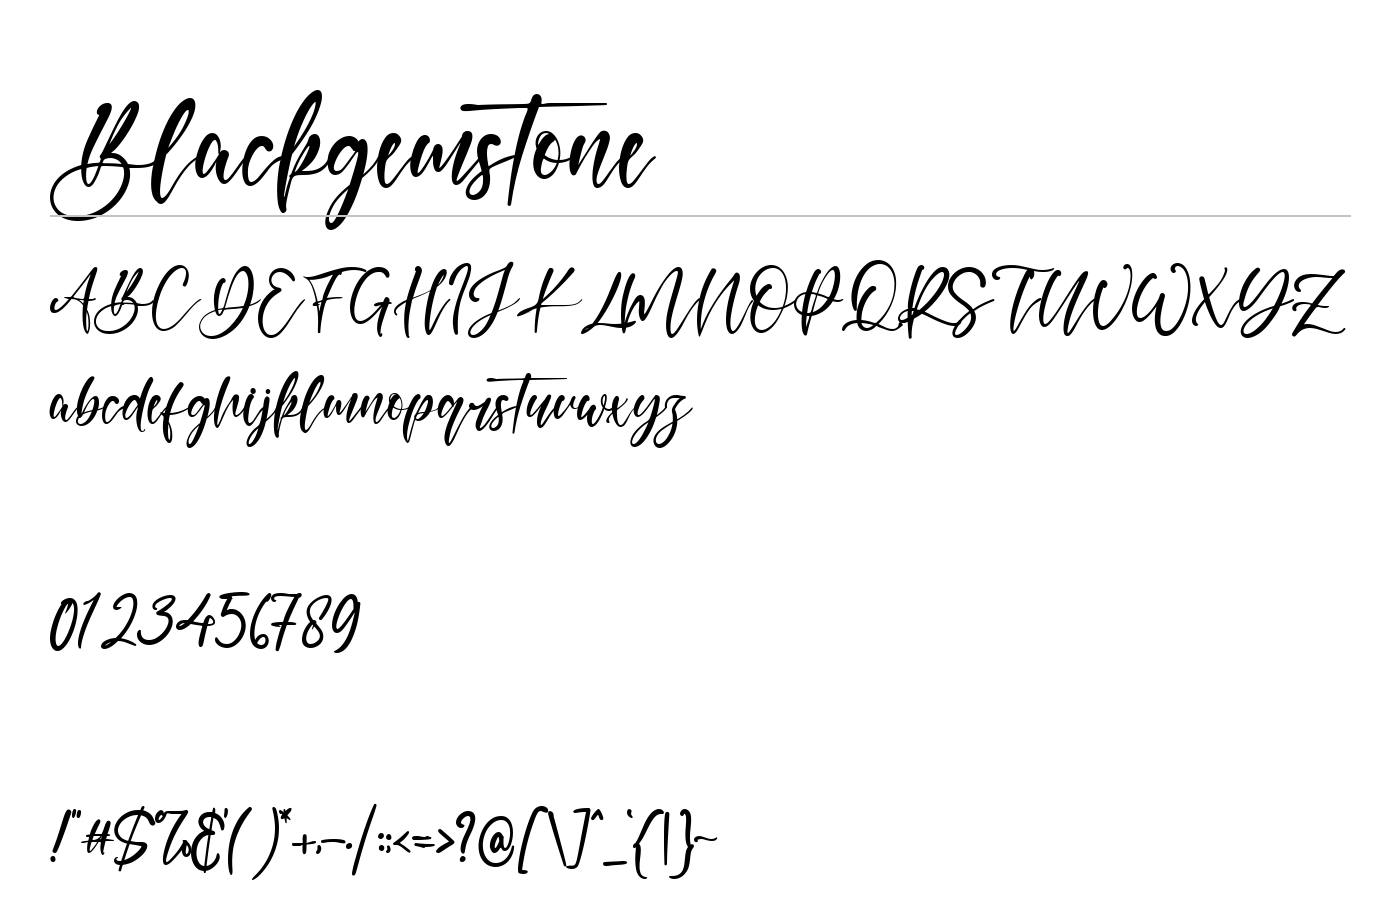 Blackgemstone
ABCDEFGHIJKLMNOPQRSTUVWXYZ
abcdefghijklmnopqrstuvwxyz
0123456789
!"#$%&'()*+,-./:;<=>?@[\]^_`{|}~